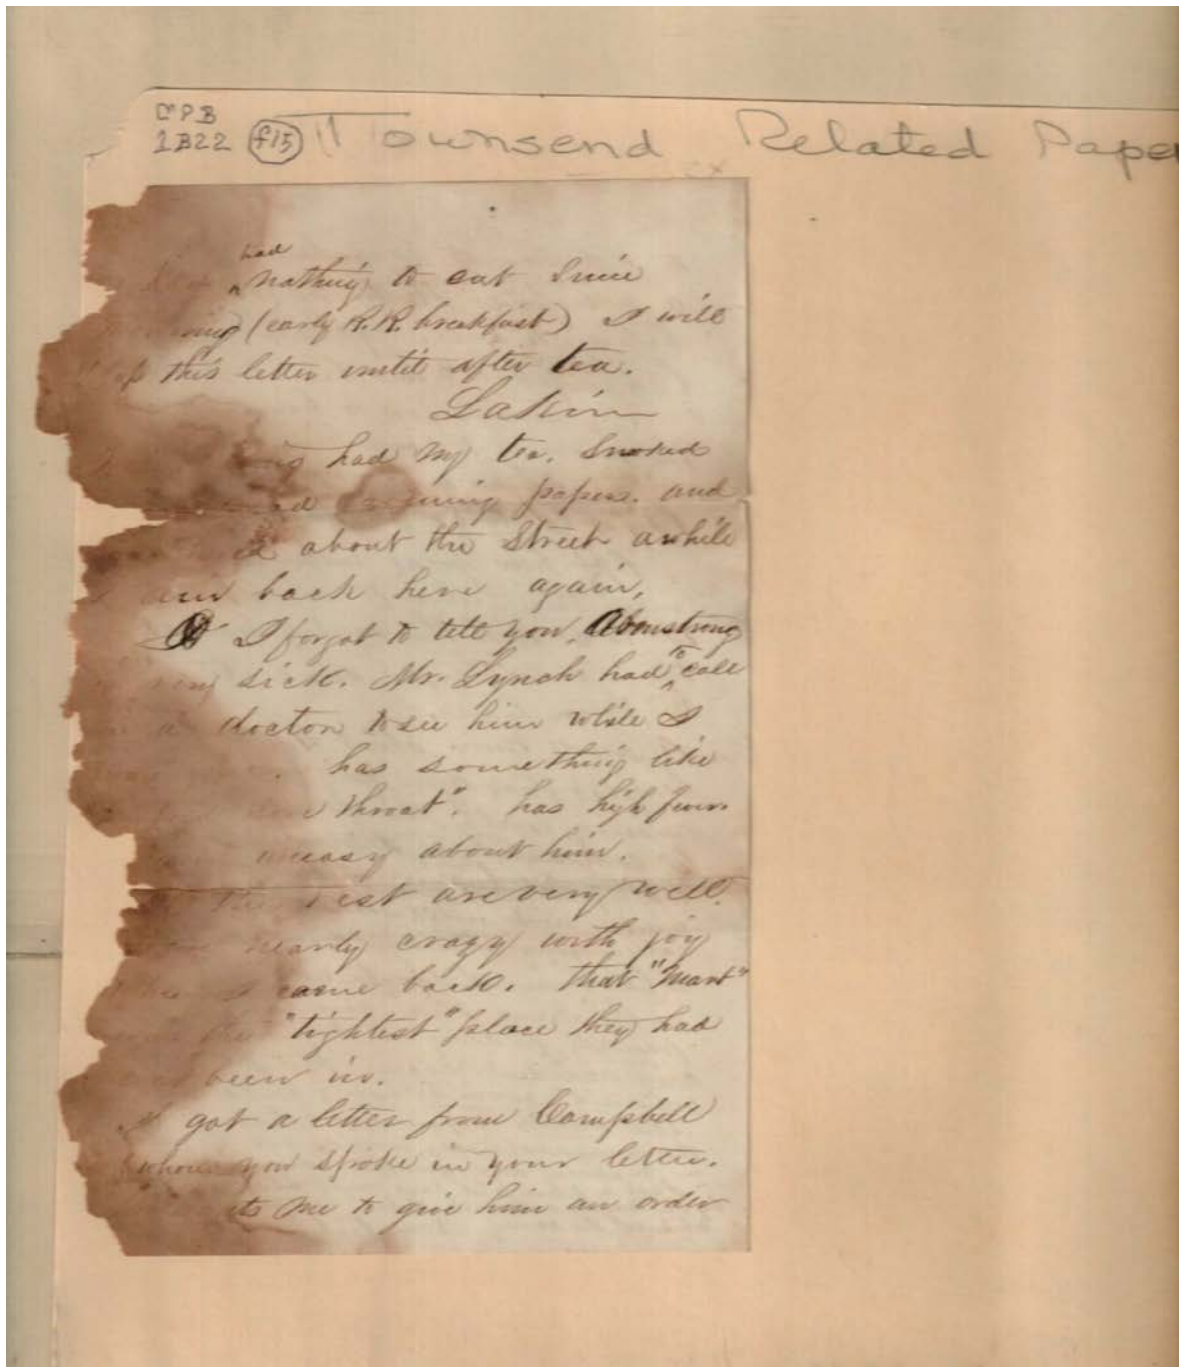 CPB
1B22 f15 Townsend Related Paper
had
nothing to eat since
(early R.R. breakfast) I will
this letter until after tea.
Lakin
had my tea. Smoked
papers. and
about the Street awhile
back here again.
I forgot to tell you,
sick. Mr. Lynch had to call
a doctor to see him while I
has something like
throat". has high fever.
uneasy about him.
rest are very well.
nearly crazy with joy
came back. that
"tightest" place they had
been in.
I got a letter from Campbell
whom you spoke in your letter.
me to give him an order